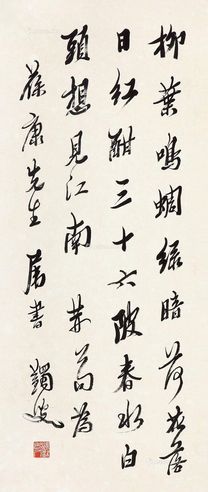 柳葉鳴蜩綠暗荷花落
日紅酣三十六陂春水白
頭想見江南 為
葆康先生屬書 蠲叟